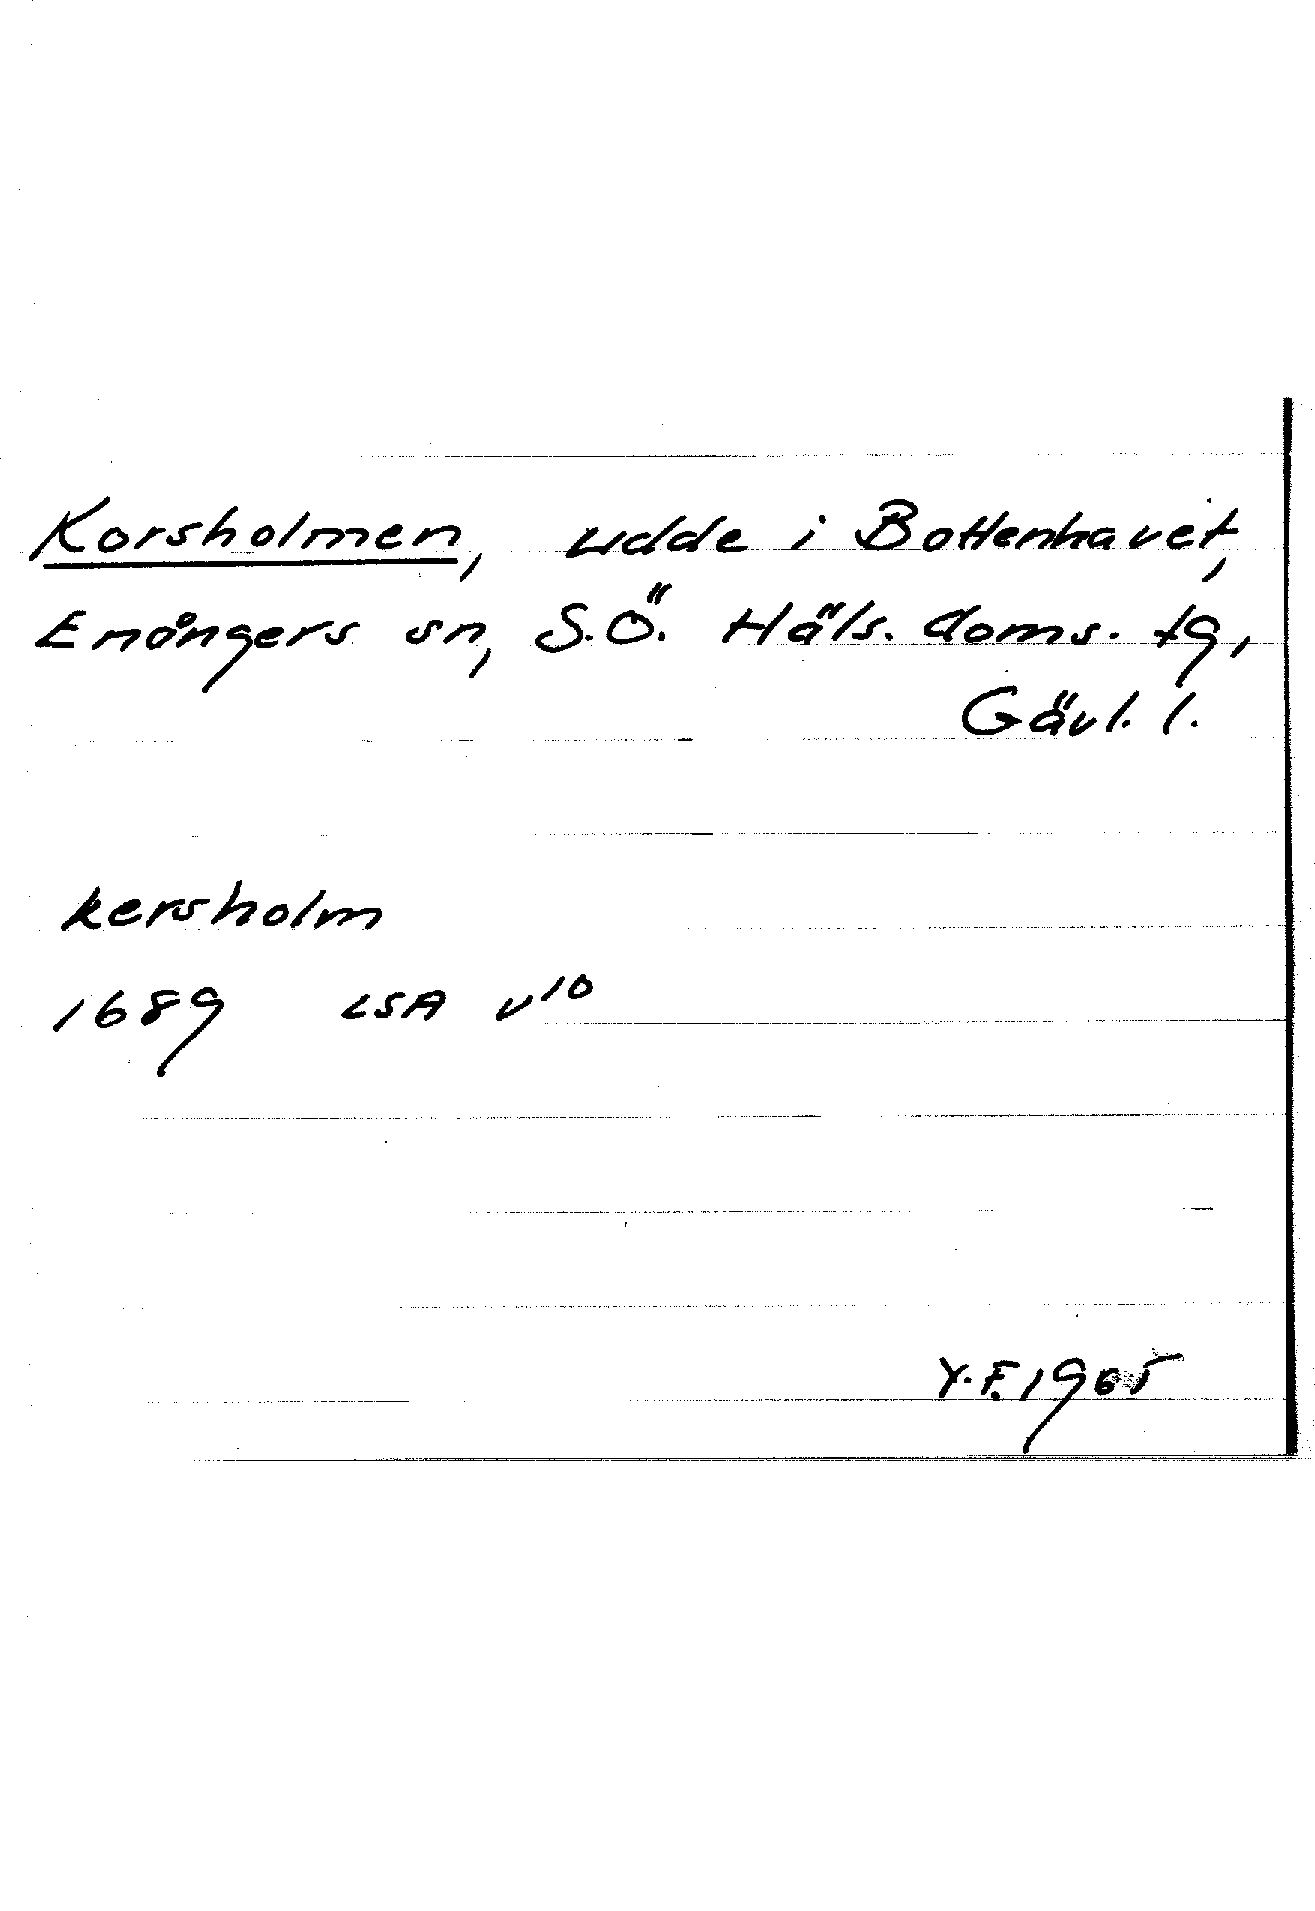 Korsholmen, udde i Bottenhavet,
Enångers sn, S.Ö. Häls. doms. tg,
Gävl. l.
kersholm
1689 LSA v¹⁰
Y.F. 1965